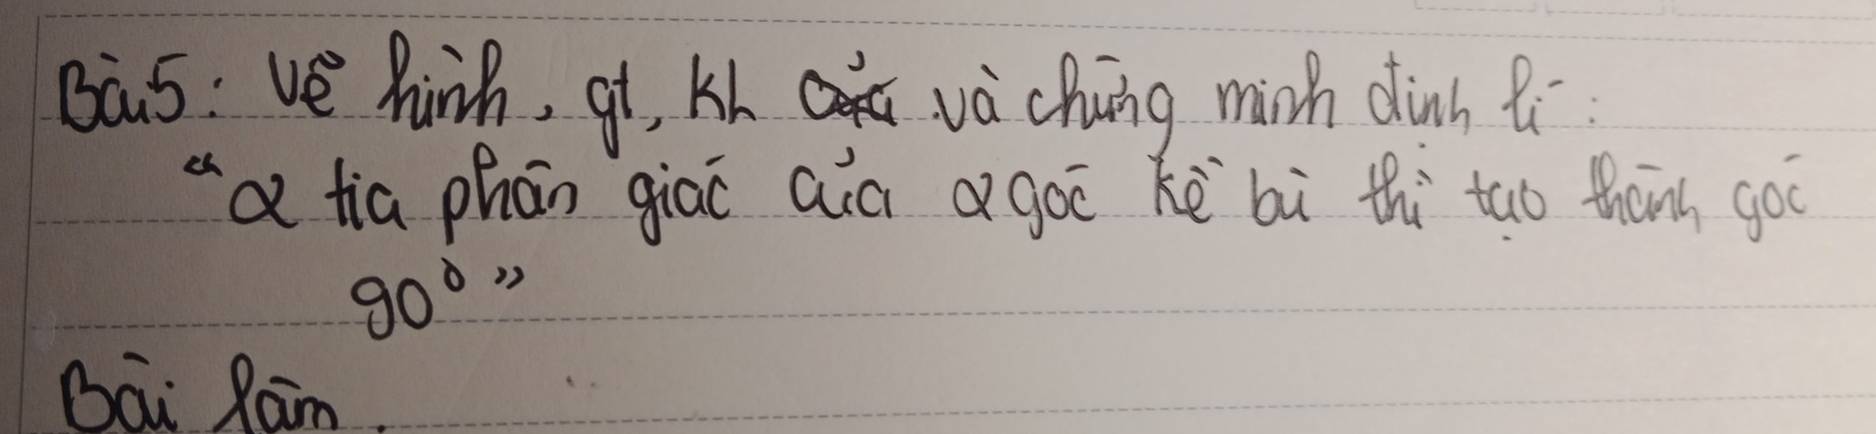 Bài 5: Vẽ hình, gt, kh và chứng minh định lí:
"2 tia phân giác của 2 góc kề bù thì tạo thành góc
90°"
Bài làm.